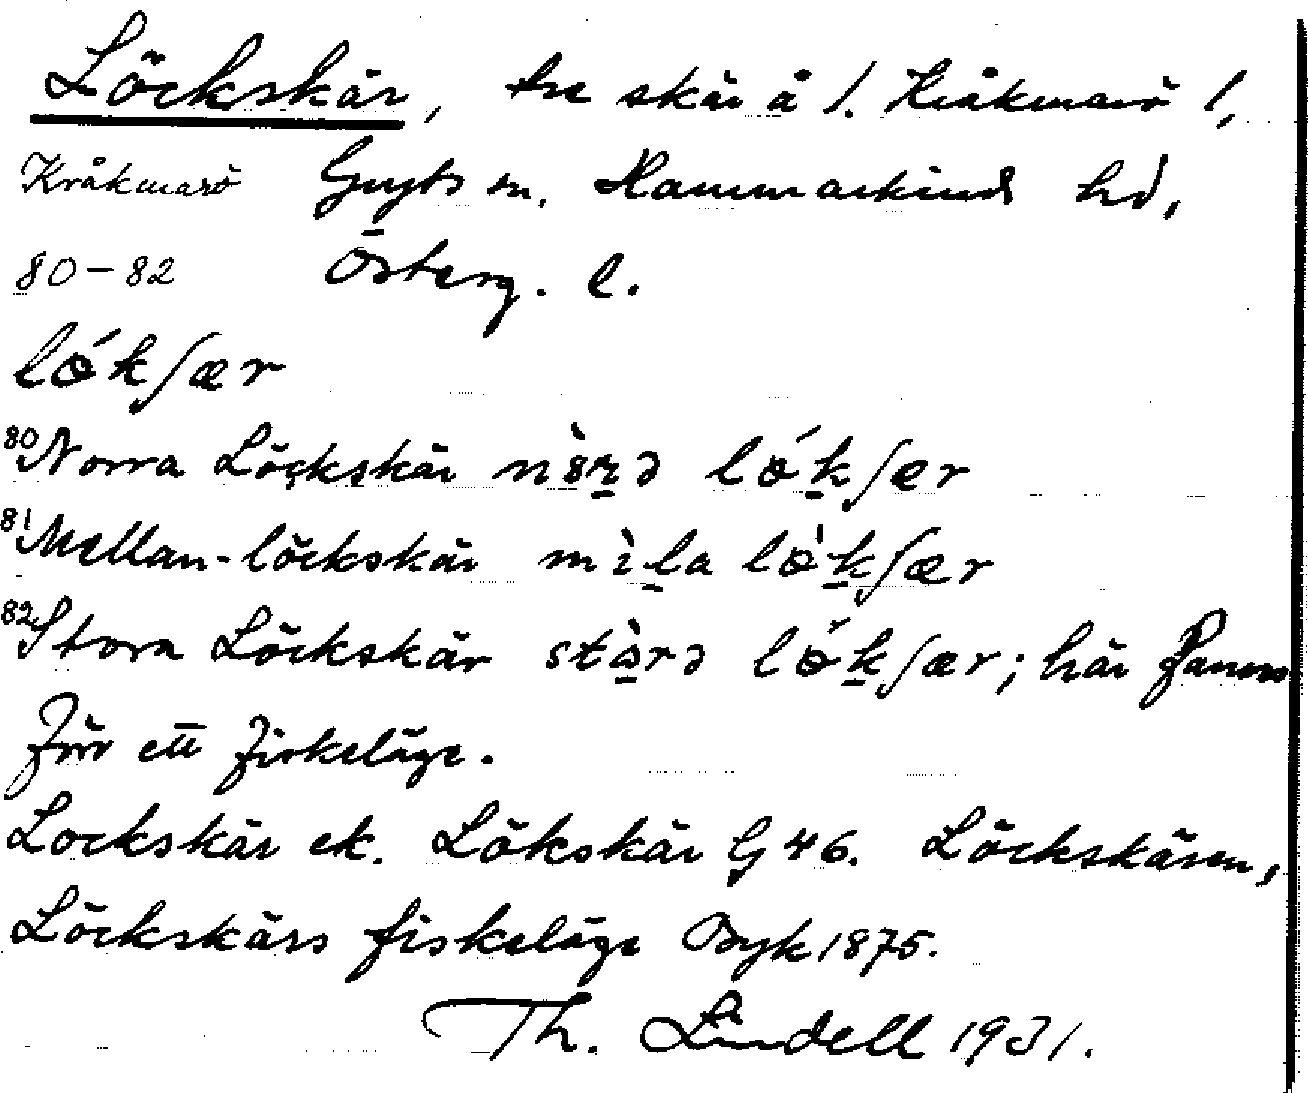 Löckskär, tre skär å 1. Kråkmarö 1,
Kråkmarö Gryts sn. Hammarkinds hd,
80–82 Österg. l.
lǿkʃær
80 Norra Löckskär nòrə lǿkʃær
81 Mellan-löckskär mìla lǿkʃær
82 Stora Löckskär stòrə lǿkʃær; här fanns
förr ett fiskeläge.
Lockskär ek. Lökskär G 46. Löckskären,
Löckskärs fiskeläge Byk 1875.
Th. Lindell 1931.